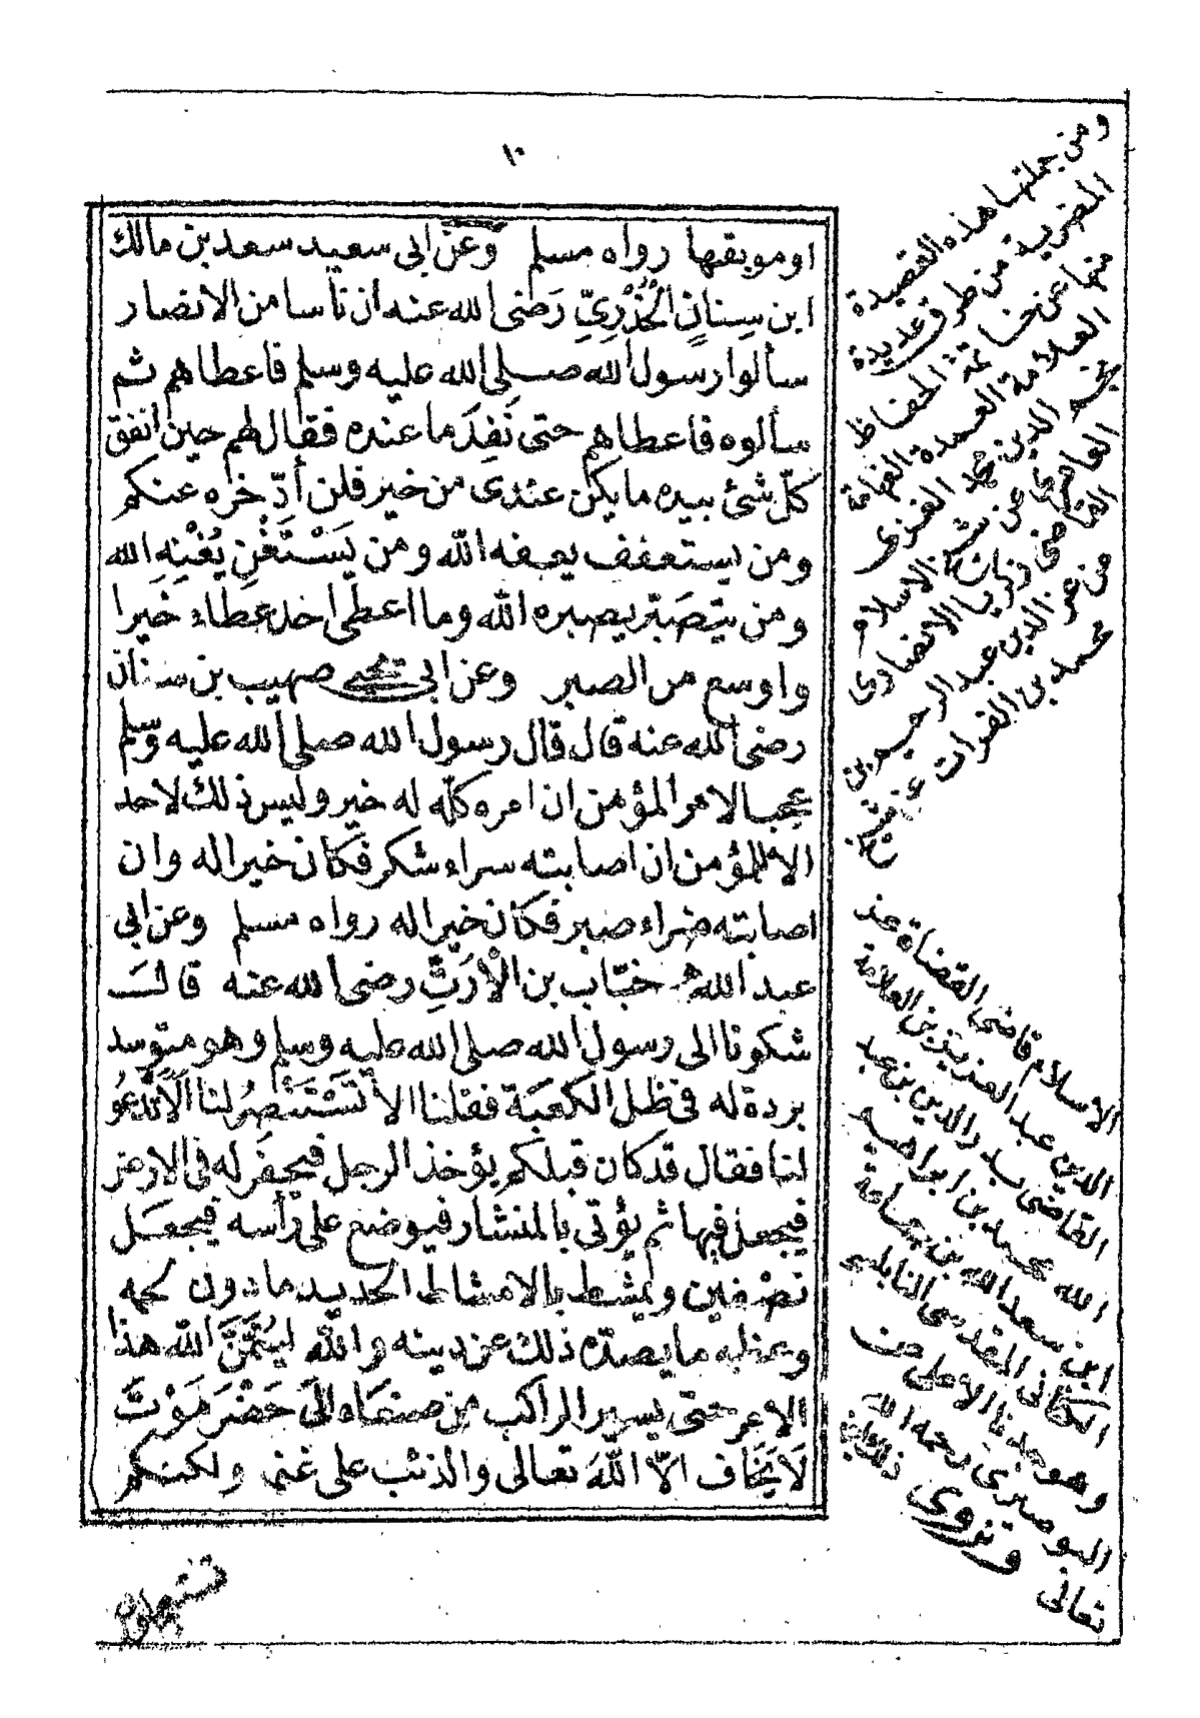 ١٠
او موبقها رواه مسلم وعن ابى سعيد سعد بن مالك
ابن سِنانٍ الْخُدْرِيِّ رَضى الله عنه ان ناسا من الانصار
سألوا رسول الله صلى الله عليه وسلم فاعطاهم ثم
سألوه فاعطاهم حتى نَفِدَ ما عنده فقال لهم حين انفق
كلّ شئ بيده ما يكن عندى من خير فلن أدّخره عنكم
ومن يستعفف يعفه الله ومن يَسْتَغْنِ يُغْنِهِ الله
ومن يتصَبّر يصبره الله وما اعطى احد عطاء خَيرا
واوسع من الصبر وعن ابى يحيى صهيب بن سنان
رضى الله عنه قال قال رسول الله صلى الله عليه وسلم
عجبا لامر المؤمن ان امره كلّه له خير وليس ذلك لاحد
الا للمؤمن ان اصابته سراء شكر فكان خيرا له وان
اصابته ضراء صبر فكان خيرا له رواه مسلم وعن ابى
عبد الله خبّاب بن الْأَرَتِّ رضى الله عنه قالَ
شكونا الى رسول الله صلى الله عليه وسلم وهو متوسد
بردة له فى ظل الكعبَة فقلنا الا تَسْتَنْصِرُ لنا اَلَا تَدْعُو
لنا فقال قد كان قبلكم يؤخذ الرجل فيحفَر له فى الارض
فيجعل فيها ثم يؤتى بالمنشار فيوضع على رأسه فيجعل
نصْفين ويمشط بالامشاط الحديد ما دون لحمه
وعظمه ما يصدّه ذلك عن دينه والله ليُتِمَّنَّ الله هذا
الامر حتى يسير الراكب من صنعاء الَى حَضْرَمَوْتَ
لَا يَخَاف الّا اللهَ تعالى والذئب على غنمه ولكنكم
تستعجلون
ومن جملتها هذه القصيدة
المضرية من طرق عديدة
منها عن خاتمة الحفاظ
العلامة العمدة الفهامة
نجم الدين محمد الغزى
العامرى عن شيخ الاسلام
القاضى زكريا الانصارى
من عز الدين عبد الرحيم بن
محمد بن الفرات عن
الاسلام قاضى القضاة عز
الدين عبد العزيز بن العلامة
القاضى بدر الدين بن عبد
الله محمد بن ابراهيم
ابن سعد الله بن جماعة
الكنانى المقدسى النابلسى
وهو جدنا الاعلى من
البوصيرى رحمه الله
تعالى ونروى